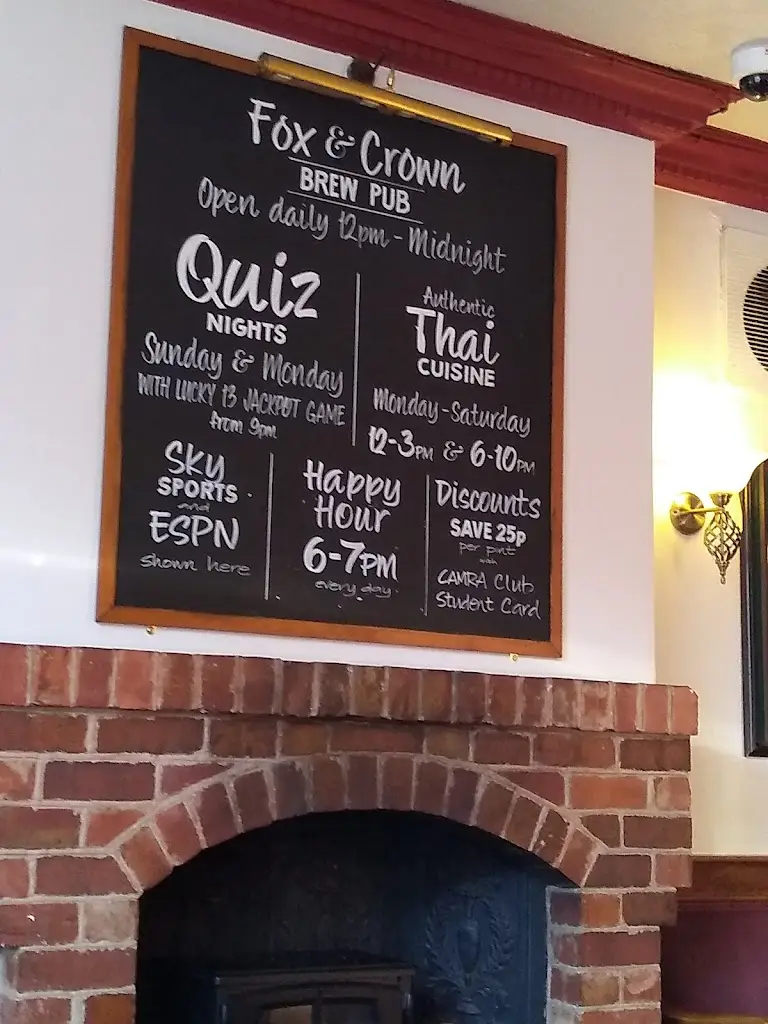 Fox & Crown
BREW PUB
Open daily 12pm - Midnight
Quiz
NIGHTS
Sunday & Monday
WITH LUCKY 13 JACKPOT GAME
from 9pm
Authentic
Thai
CUISINE
Monday - Saturday
12-3PM & 6-10PM
SKY
SPORTS
and
ESPN
shown here
Happy
Hour
6-7PM
every day
Discounts
SAVE 25p
per pint
with
CAMRA Club
Student Card